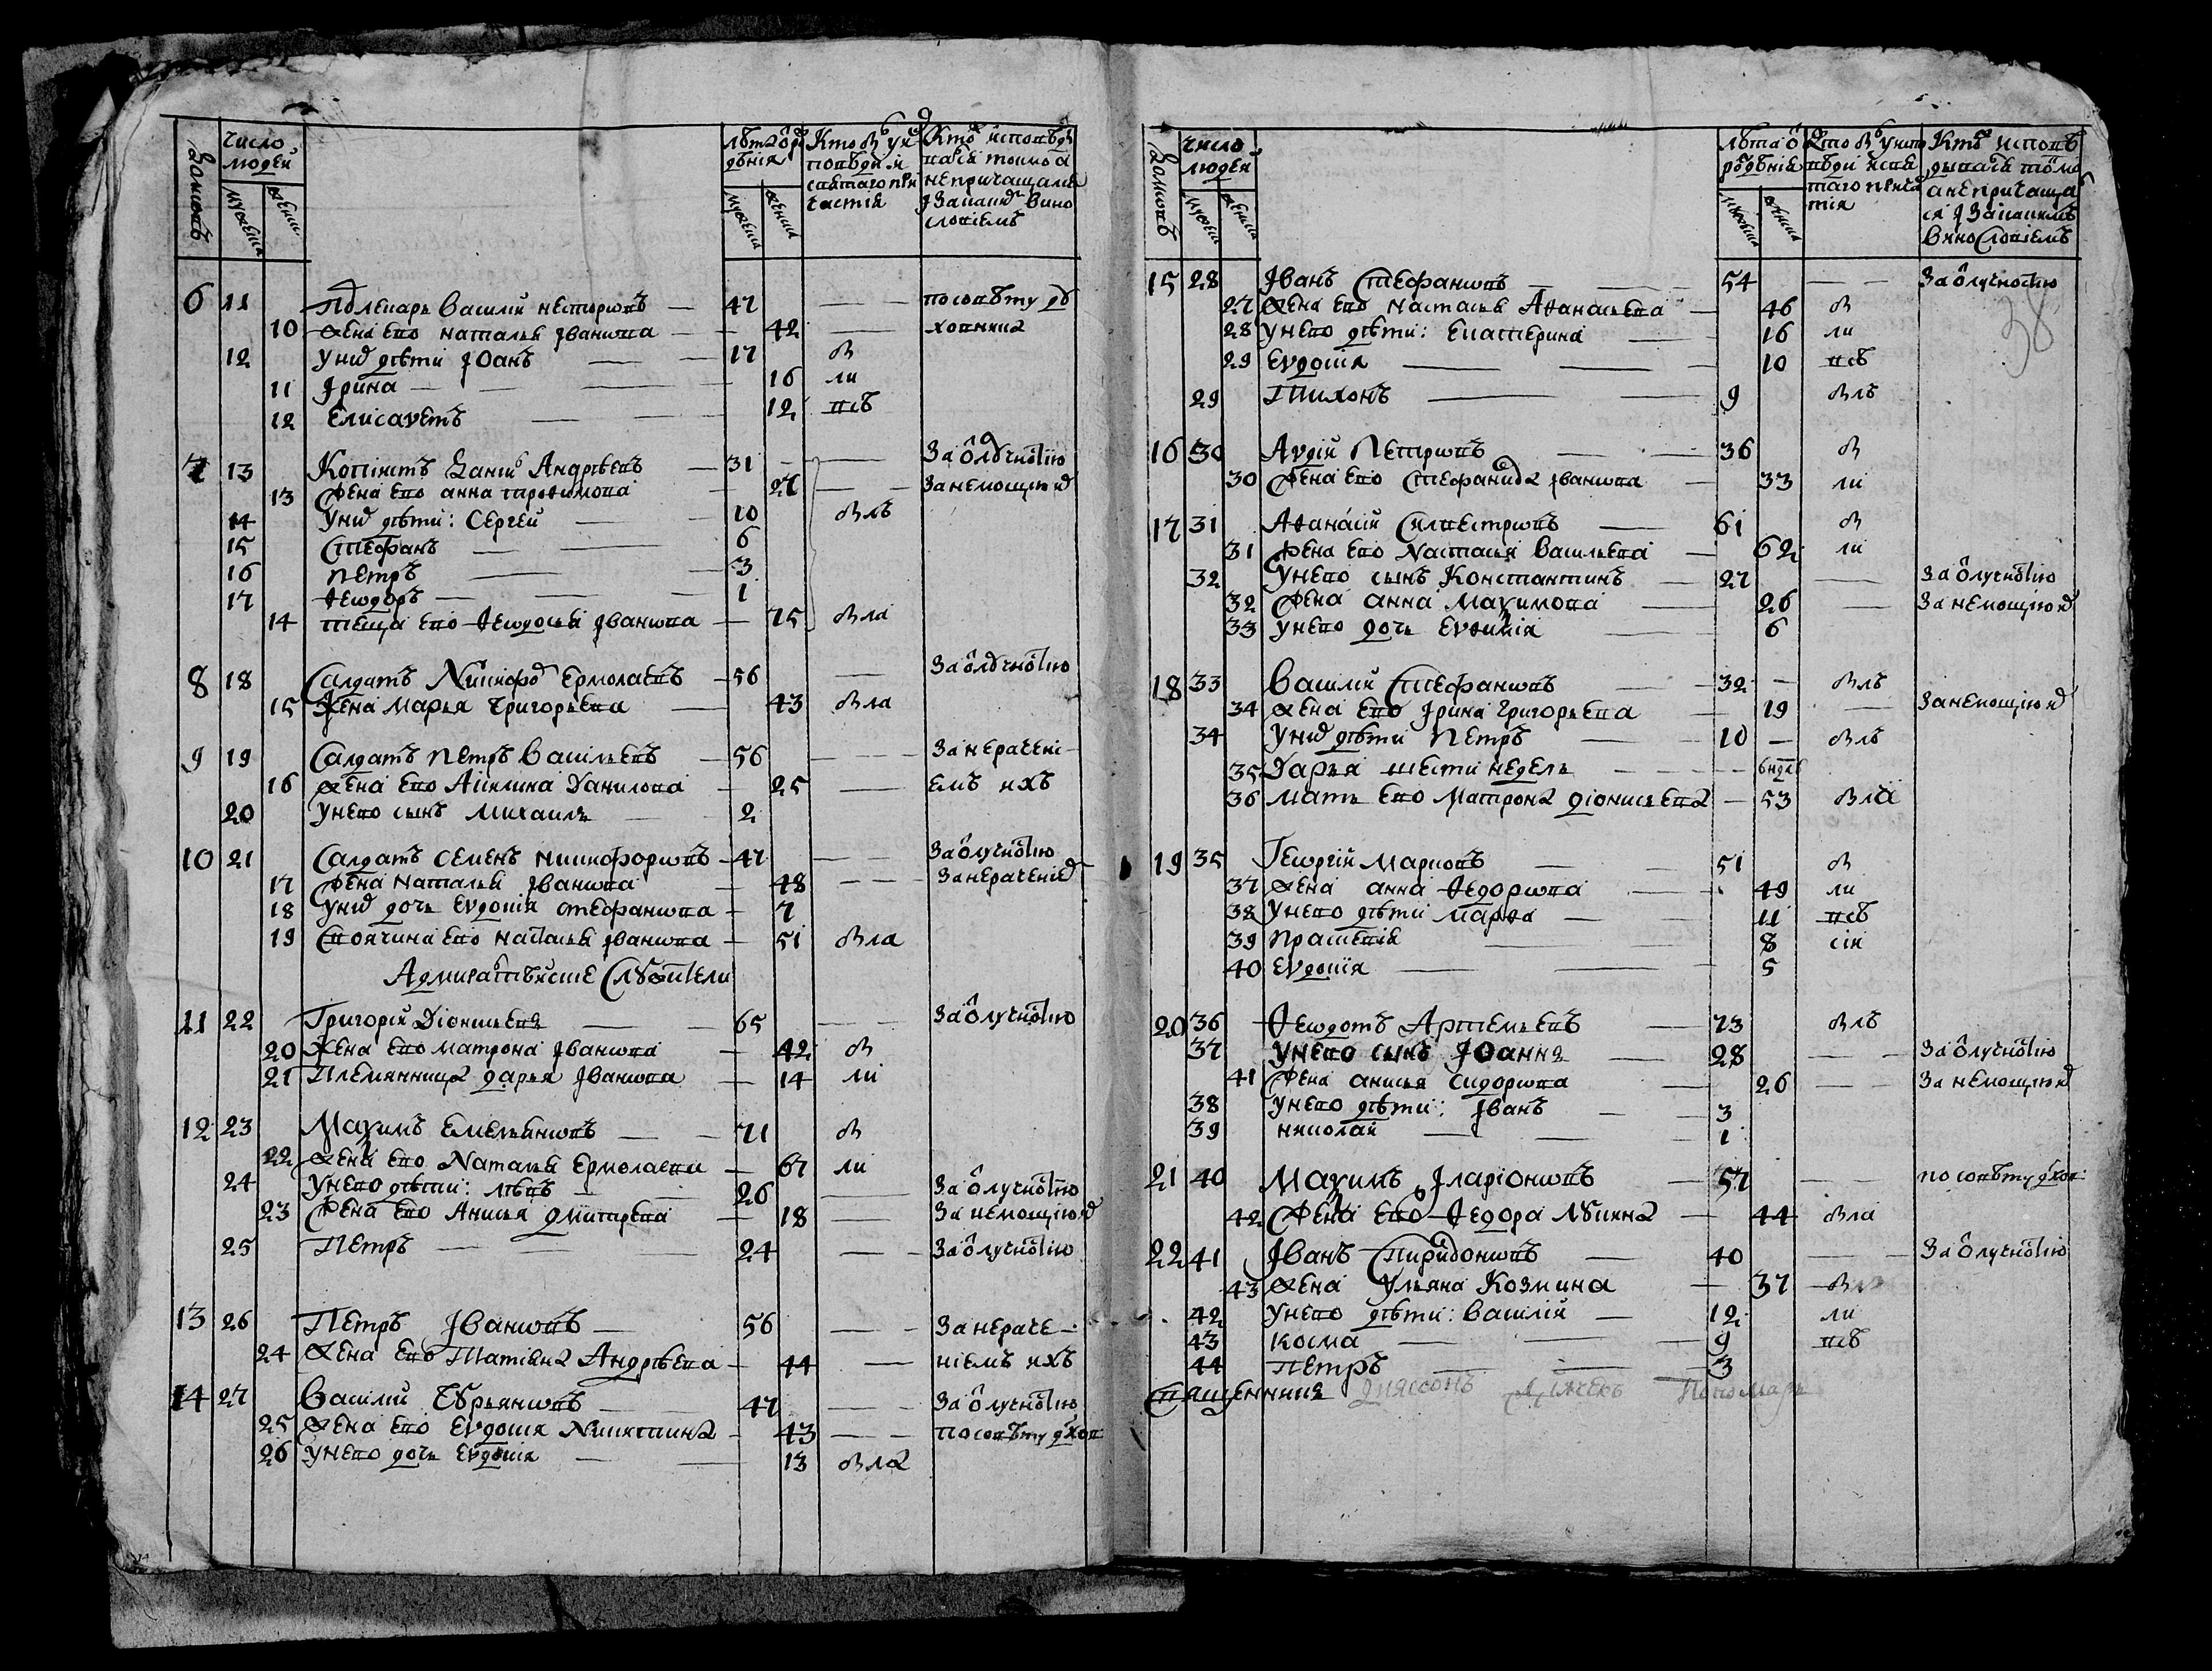 Число людей
Домовъ
мужеска
женска
лѣта ѿ рождения
мужеска
женска
Кто былъ у исповѣди и святаго причастия
Кто исповѣдался токмо а не причащался и за какимъ винословіемъ
6 11 Подлекарь Василий Несторовъ — 47 — по совѣту ду
10 жена ево Наталья Іванова — 42 — ховника
12 у них дѣти Іоанъ — 17 бы
11 Ірина — 16 ли
12 Елисаветъ — 12 всѣ
7 13 Копіистъ Данил Андрѣевъ — 31 — За ѿлучностию
13 Жена ево Анна Трофимова — 27 — За немощию
14 У них дѣти: Сергей — 10 былъ
15 Стефанъ — 6
16 Петръ — 3
17 Ѳеодоръ — 1
14 теща ево Ѳеодосья Іванова — 75 была
8 18 Салдатъ Никифор Ермолаевъ — 56 — За ѿлучностию
15 Жена Марья Григорьева — 43 была
9 19 Салдатъ Петръ Васильевъ — 56 — За нерачені-
16 жена ево Акилина Данилова — 25 — емъ ихъ
20 У нево сынъ Михаилъ — 2
10 21 Салдатъ Семенъ Никифоровъ — 47 — За ѿлучностию
17 Жена Наталья Іванова — 48 — За нерачение
18 У них дочь Евдокія Стефанова — 7
19 Своячина ево Настасья Іванова — 51 была
Адмиралтѣйские Служители
11 22 Григорій Діонисьевъ — 65 — За ѿлучностию
20 Жена ево Матрона Іванова — 42 бы
21 Племянница Дарья Іванова — 14 ли
12 23 Маѯимъ Емельяновъ — 71 бы
22 жена ево Наталья Ермолаева — 67 ли
24 У нево дѣти: Левъ — 26 — За ѿлучностию
23 Жена ево Анисья Дмитрева — 18 — За немощию
25 Петръ — 24 — За ѿлучностию
13 26 Петръ Івановъ — 56 — За нераче-
24 Жена ево Татіяна Андрѣева — 44 — ніемъ ихъ
14 27 Василий Гурьяновъ — 47 — За ѿлучностию
25 Жена ево Евдокия Никитина — 43 — по совѣту духов
26 У нево дочь Евдокія — 13 была
Число людей
Домовъ
мужеска
женска
лѣта ѿ рождения
мужеска
женска
Кто былъ у исповѣди и святаго причастия
Кто исповѣдался токмо а не причащался и за какимъ винословіемъ
38
15 28 Іванъ Стефановъ — 54 — За ѿлучностию
27 Жена ево Настасья Аѳанасьева — 46 бы
28 У нево дѣти: Екатерина — 16 ли
29 Евдокія — 10 всѣ
29 Тихонъ — 9 былъ
16 30 Авдій Петровъ — 36 бы
30 Жена ево Стефанида Іванова — 33 ли
17 31 Аѳанасій Силвестровъ — 61 бы
31 Жена ево Настасья Васильева — 62 ли
32 У нево сынъ Константинъ — 27 — За ѿлучностию
32 Жена Анна Маѯимова — 26 — За немощию
33 У нево дочь Евѳимія — 6
18 33 Василий Стефановъ — 32 — былъ
34 жена ево Ірина Григорьева — 19 — За немощию
34 У них дѣти Петръ — 10 — былъ
35 Дарья шести недель — 6 недль
36 Мать ево Матрона Діонисьева — 53 была
19 35 Георгій Марковъ — 51 бы
37 жена Анна Ѳедорова — 49 ли
38 У нево дѣти Марѳа — 11 всѣ
39 Прасковія — 8 сіи
40 Евдокія — 5
20 36 Ѳеодотъ Артемьевъ — 73 былъ
37 У нево сынъ Іоаннъ — 28 — За ѿлучностию
41 Жена Анисья Сидорова — 26 — За немощию
38 У нево дѣти: Іванъ — 3
39 Николай — 1
21 40 Маѯимъ Іларіоновъ — 57 — по совѣту духов:
42 Жена ево Ѳедора Лукина — 44 была
22 41 Іванъ Спиридоновъ — 40 — За ѿлучностию
43 Жена Ульяна Козмина — 37 бы
42 У нево дѣти: Василій — 12 ли
43 Косма — 9 всѣ
44 Петръ — 3
Священникъ Пономарь